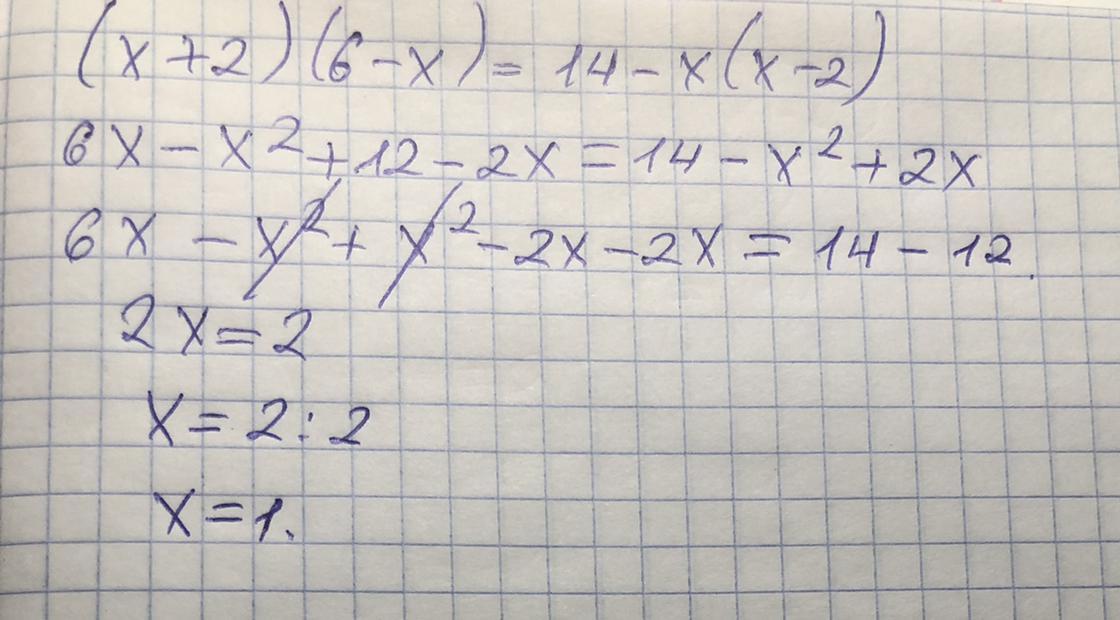 (x+2)(6-x)=14-x(x-2)
6x-x²+12-2x=14-x²+2x
6x-x²+x²-2x-2x=14-12.
2x=2
x=2:2
x=1.